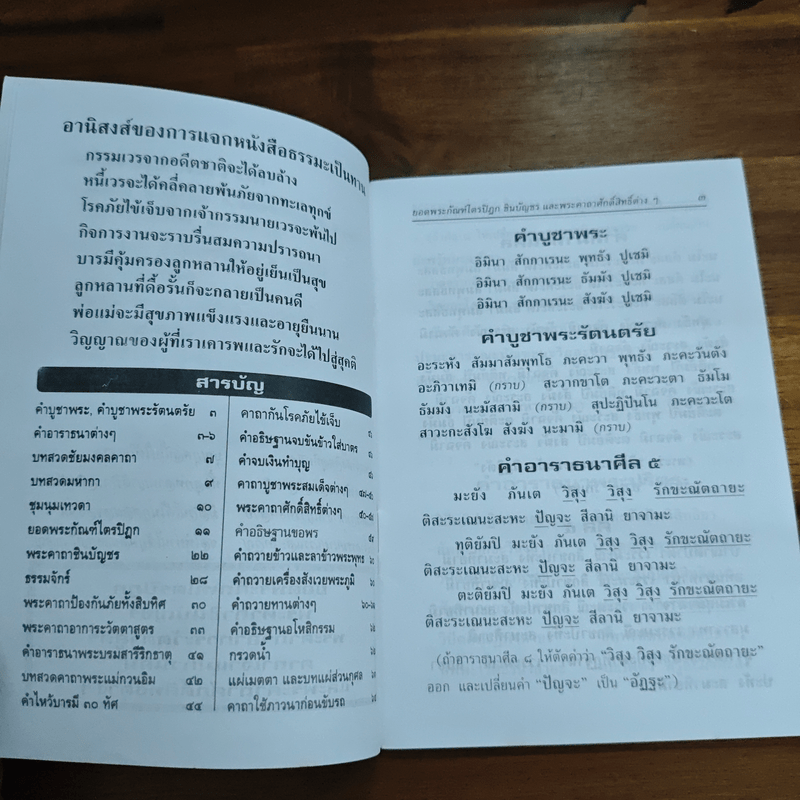 อานิสงส์ของการแจกหนังสือธรรมะเป็นทาน
กรรมเวรจากอดีตชาติจะได้ลบล้าง
หนี้เวรจะได้คลี่คลายพ้นภัยจากทะเลทุกข์
โรคภัยไข้เจ็บจากเจ้ากรรมนายเวรจะพ้นไป
กิจการงานจะราบรื่นสมความปรารถนา
บารมีคุ้มครองลูกหลานให้อยู่เย็นเป็นสุข
ลูกหลานที่ดื้อรั้นก็จะกลายเป็นคนดี
พ่อแม่จะมีสุขภาพแข็งแรงและอายุยืนนาน
วิญญาณของผู้ที่เราเคารพและรักจะได้ไปสู่สุคติ
สารบัญ
คำบูชาพระ, คำบูชาพระรัตนตรัย ๓
คำอาราธนาต่างๆ ๓-๖
บทสวดชัยมงคลคาถา ๗
บทสวดมห่ากา ๙
ชุมนุมเทวดา ๑๐
ยอดพระกัณฑ์ไตรปิฎก ๑๑
พระคาถาชินบัญชร ๒๒
ธรรมจักร์ ๒๘
พระคาถาป้องกันภัยทั้งสิบทิศ ๓๐
พระคาถาอาการะวัตตาสูตร ๓๓
คำอาราธนาพระบรมสารีริกธาตุ ๔๑
บทสวดคาถาพระแม่กวนอิม ๔๒
คำไหว้บารมี ๓๐ ทัศ ๔๔
คาถากันโรคภัยไข้เจ็บ
คำอธิษฐานจบขันข้าวใส่บาตร
คำจบเงินทำบุญ
คาถาบูชาพระสมเด็จต่างๆ
พระคาถาศักดิ์สิทธิ์ต่างๆ
คำอธิษฐานขอพร
คำถวายข้าวและลาข้าวพระพุทธ
คำถวายเครื่องสังเวยพระภูมิ
คำถวายทานต่างๆ
คำอธิษฐานอโหสิกรรม
กรวดน้ำ
แผ่เมตตา และบทแผ่ส่วนกุศล
คาถาใช้ภาวนาก่อนขับรถ
ยอดพระกัณฑ์ไตรปิฎก ชินบัญชร และพระคาถาศักดิ์สิทธิ์ต่าง ๆ ๓
คำบูชาพระ
อิมินา สักกาเรนะ พุทธัง ปูเชมิ
อิมินา สักกาเรนะ ธัมมัง ปูเชมิ
อิมินา สักกาเรนะ สังฆัง ปูเชมิ
คำบูชาพระรัตนตรัย
อะระหัง สัมมาสัมพุทโธ ภะคะวา พุทธัง ภะคะวันตัง
อะภิวาเทมิ (กราบ) สะวากขาโต ภะคะวะตา ธัมโม
ธัมมัง นะมัสสามิ (กราบ) สุปะฏิปันโน ภะคะวะโต
สาวะกะสังโฆ สังฆัง นะมามิ (กราบ)
คำอาราธนาศีล ๕
มะยัง ภันเต วิสุง วิสุง รักขะณัตถายะ
ติสะระเณนะสะหะ ปัญจะ สีลานิ ยาจามะ
ทุติยัมปิ มะยัง ภันเต วิสุง วิสุง รักขะณัตถายะ
ติสะระเณนะสะหะ ปัญจะ สีลานิ ยาจามะ
ตะติยัมปิ มะยัง ภันเต วิสุง วิสุง รักขะณัตถายะ
ติสะระเณนะสะหะ ปัญจะ สีลานิ ยาจามะ
(ถ้าอาราธนาศีล ๘ ให้ตัดคำว่า “วิสุง วิสุง รักขะณัตถายะ”
ออก และเปลี่ยนคำ “ปัญจะ” เป็น “อัฏฐะ”)